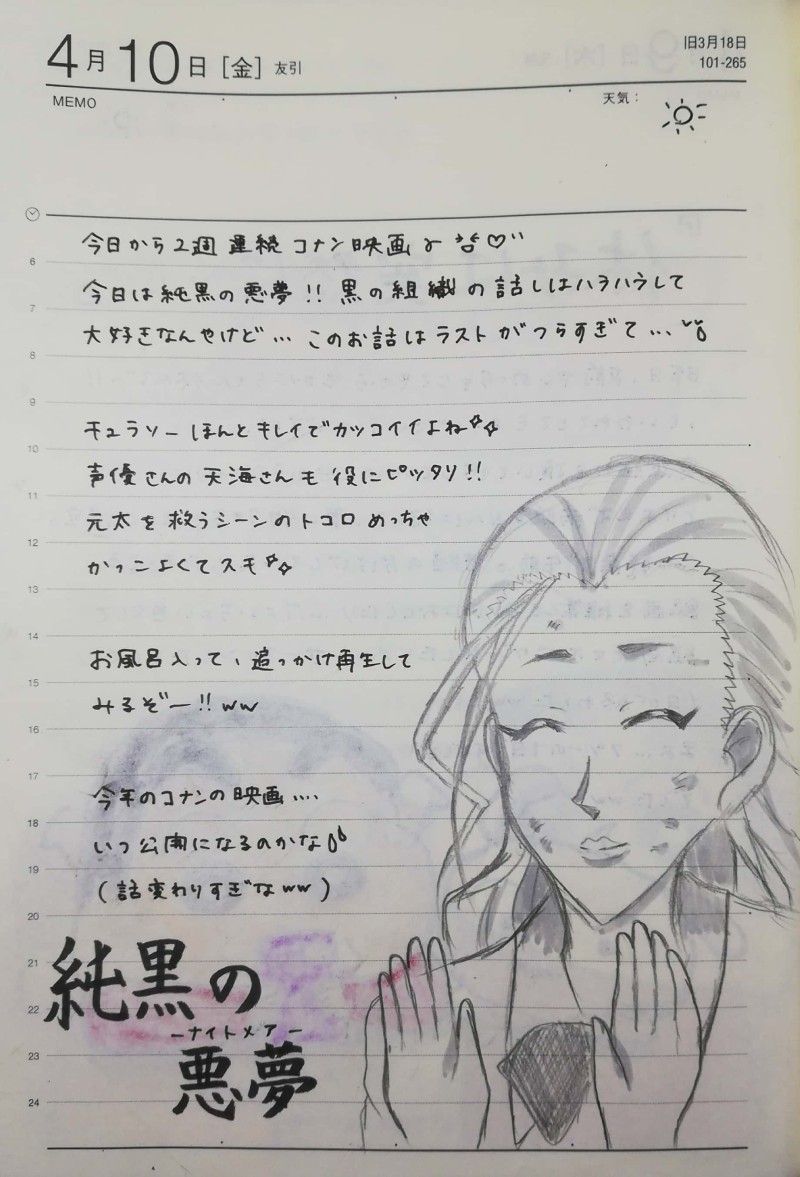 4月10日[金]友引
旧3月18日
101-265
MEMO
天気:
今日から2週連続コナン映画
今日は純黒の悪夢!! 黒の組織の話しはハラハラして
大好きなんやけど… このお話はラストがつらすぎて…
キュラソーほんとキレイでカッコイイよね
声優さんの天海さんも役にピッタリ!!
元太を救うシーンのトコロめっちゃ
かっこよくてスキ
お風呂入って、追っかけ再生して
みるぞー!!ww
今年のコナンの映画....
いつ公開になるのかな
(話変わりすぎなww)
純黒の
ーナイトメアー
悪夢
6
7
8
9
10
11
12
13
14
15
16
17
18
19
20
21
22
23
24